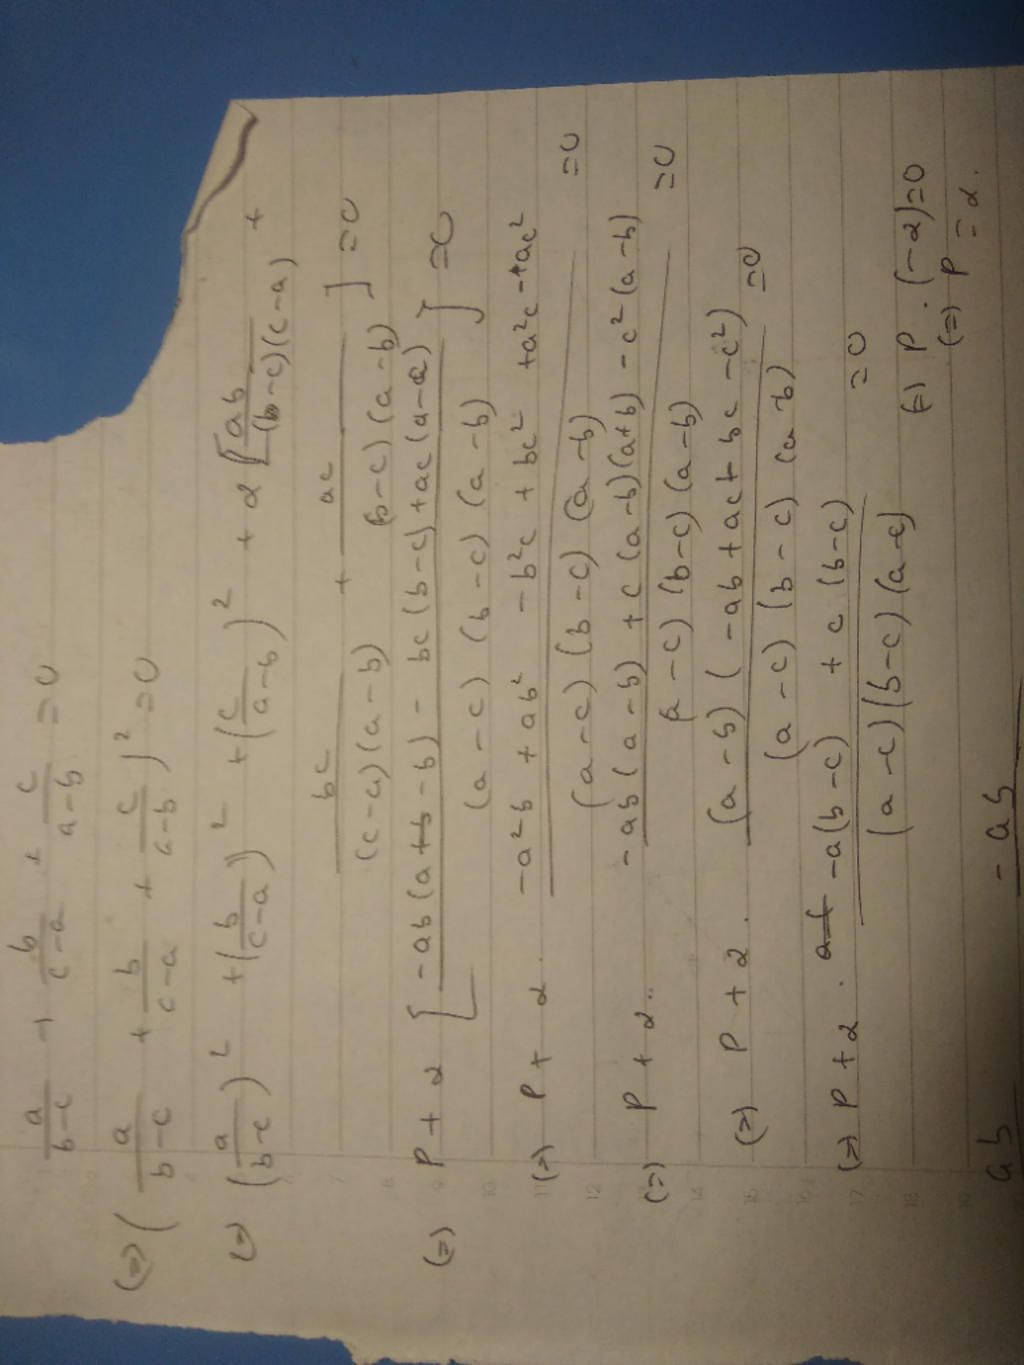 a/(b-c) + b/(c-a) + c/(a-b) = 0
(=) (a/(b-c) + b/(c-a) + c/(a-b))² = 0
(=) (a/(b-c))² + (b/(c-a))² + (c/(a-b))² + 2[ab/((b-c)(c-a)) +
bc/((c-a)(a-b)) + ac/((b-c)(a-b))] = 0
(=) P + 2 [(-ab(a-b) - bc(b-c) + ac(a-c))/((a-c)(b-c)(a-b))] = 0
(=) P + 2. (-a²b + ab² - b²c + bc² + a²c - ac²)/((a-c)(b-c)(a-b)) = 0
(=) P + 2.. (-ab(a-b) + c(a-b)(a+b) - c²(a-b))/((a-c)(b-c)(a-b)) = 0
(=) P + 2. ((a-b)(-ab + ac + bc - c²))/((a-c)(b-c)(a-b)) = 0
(=) P + 2. (-a(b-c) + c(b-c))/((a-c)(b-c)(a-c)) = 0
(=) P. (-2) = 0
(=) P = 2.
ab - ab